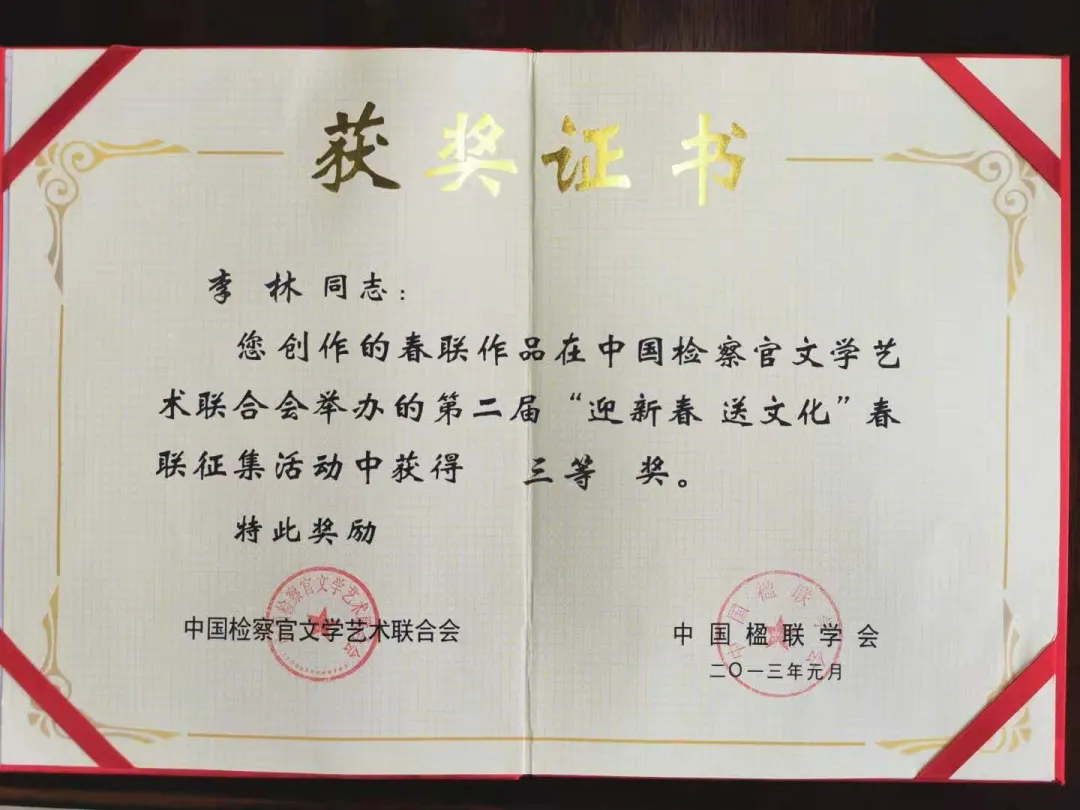 获奖证书
李 林 同志：
您创作的春联作品在中国检察官文学艺
术联合会举办的第二届“迎新春 送文化”春
联征集活动中获得 三等 奖。
特此奖励
中国检察官文学艺术联合会
中国楹联学会
二〇一三年元月